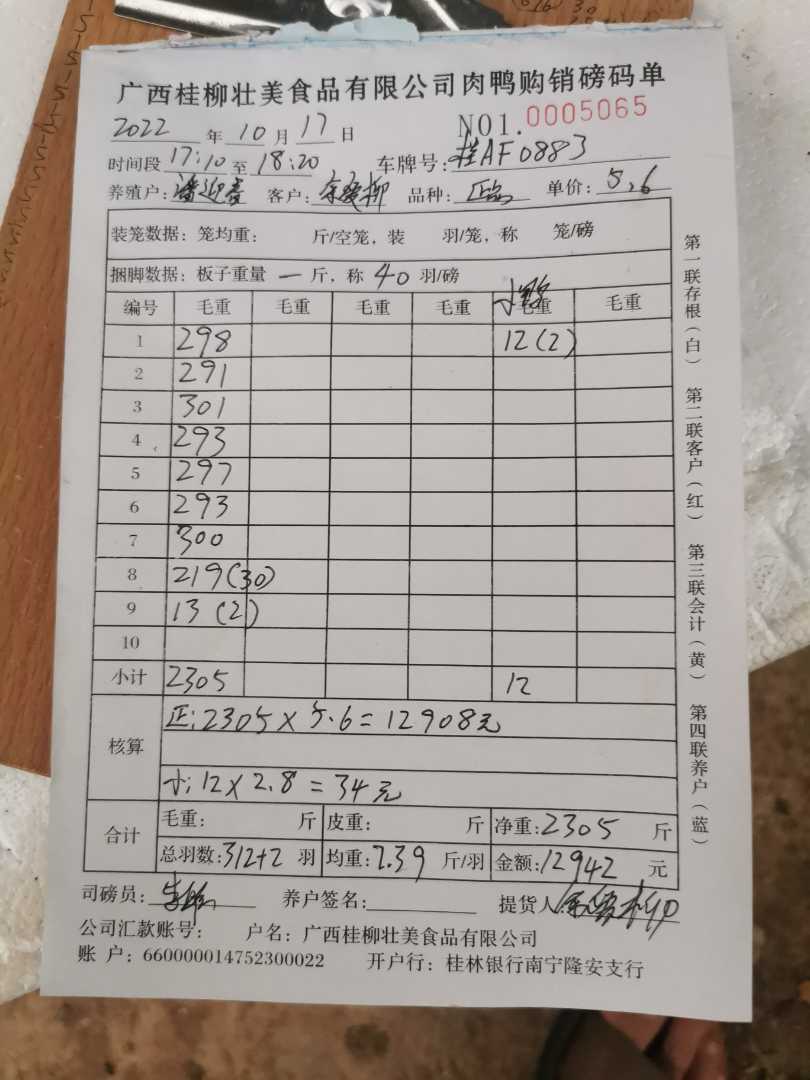 广西桂柳壮美食品有限公司肉鸭购销磅码单
2022 年 10 月 17 日 NO1.0005065
时间段 17:10 至 18:20 车牌号: 桂AF0883
养殖户: 客户: 品种: 单价: 5.6
装笼数据: 笼均重: 斤/空笼, 装 羽/笼, 称 笼/磅
捆脚数据: 板子重量 一 斤, 称 40 羽/磅
编号 毛重 毛重 毛重 毛重 毛重 毛重
1 298 12(2)
2 291
3 301
4 293
5 297
6 293
7 300
8 219(30)
9 13(2)
10
小计 2305 12
核算
正: 2305×5.6=12908元
小: 12×2.8=34元
合计
毛重: 斤 皮重: 斤 净重: 2305 斤
总羽数: 312+2 羽 均重: 7.39 斤/羽 金额: 12942 元
司磅员: 养户签名: 提货人:
公司汇款账号: 户名: 广西桂柳壮美食品有限公司
账 户: 660000014752300022 开户行: 桂林银行南宁隆安支行
第一联存根(白) 第二联客户(红) 第三联会计(黄) 第四联养户(蓝)